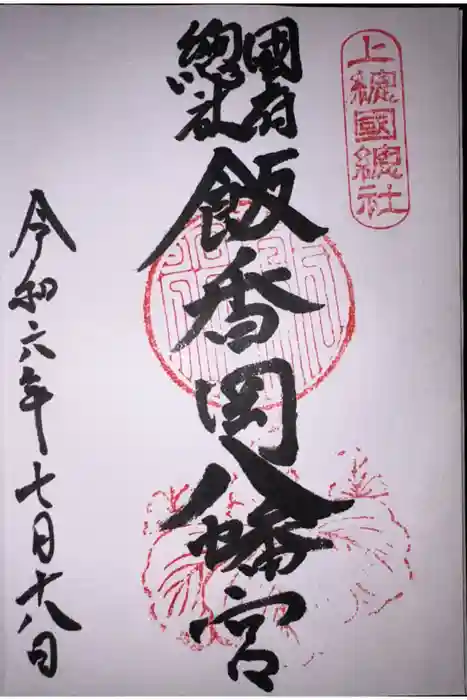 上総國総社
國府
總社
飯香岡八幡宮
令和六年七月十八日